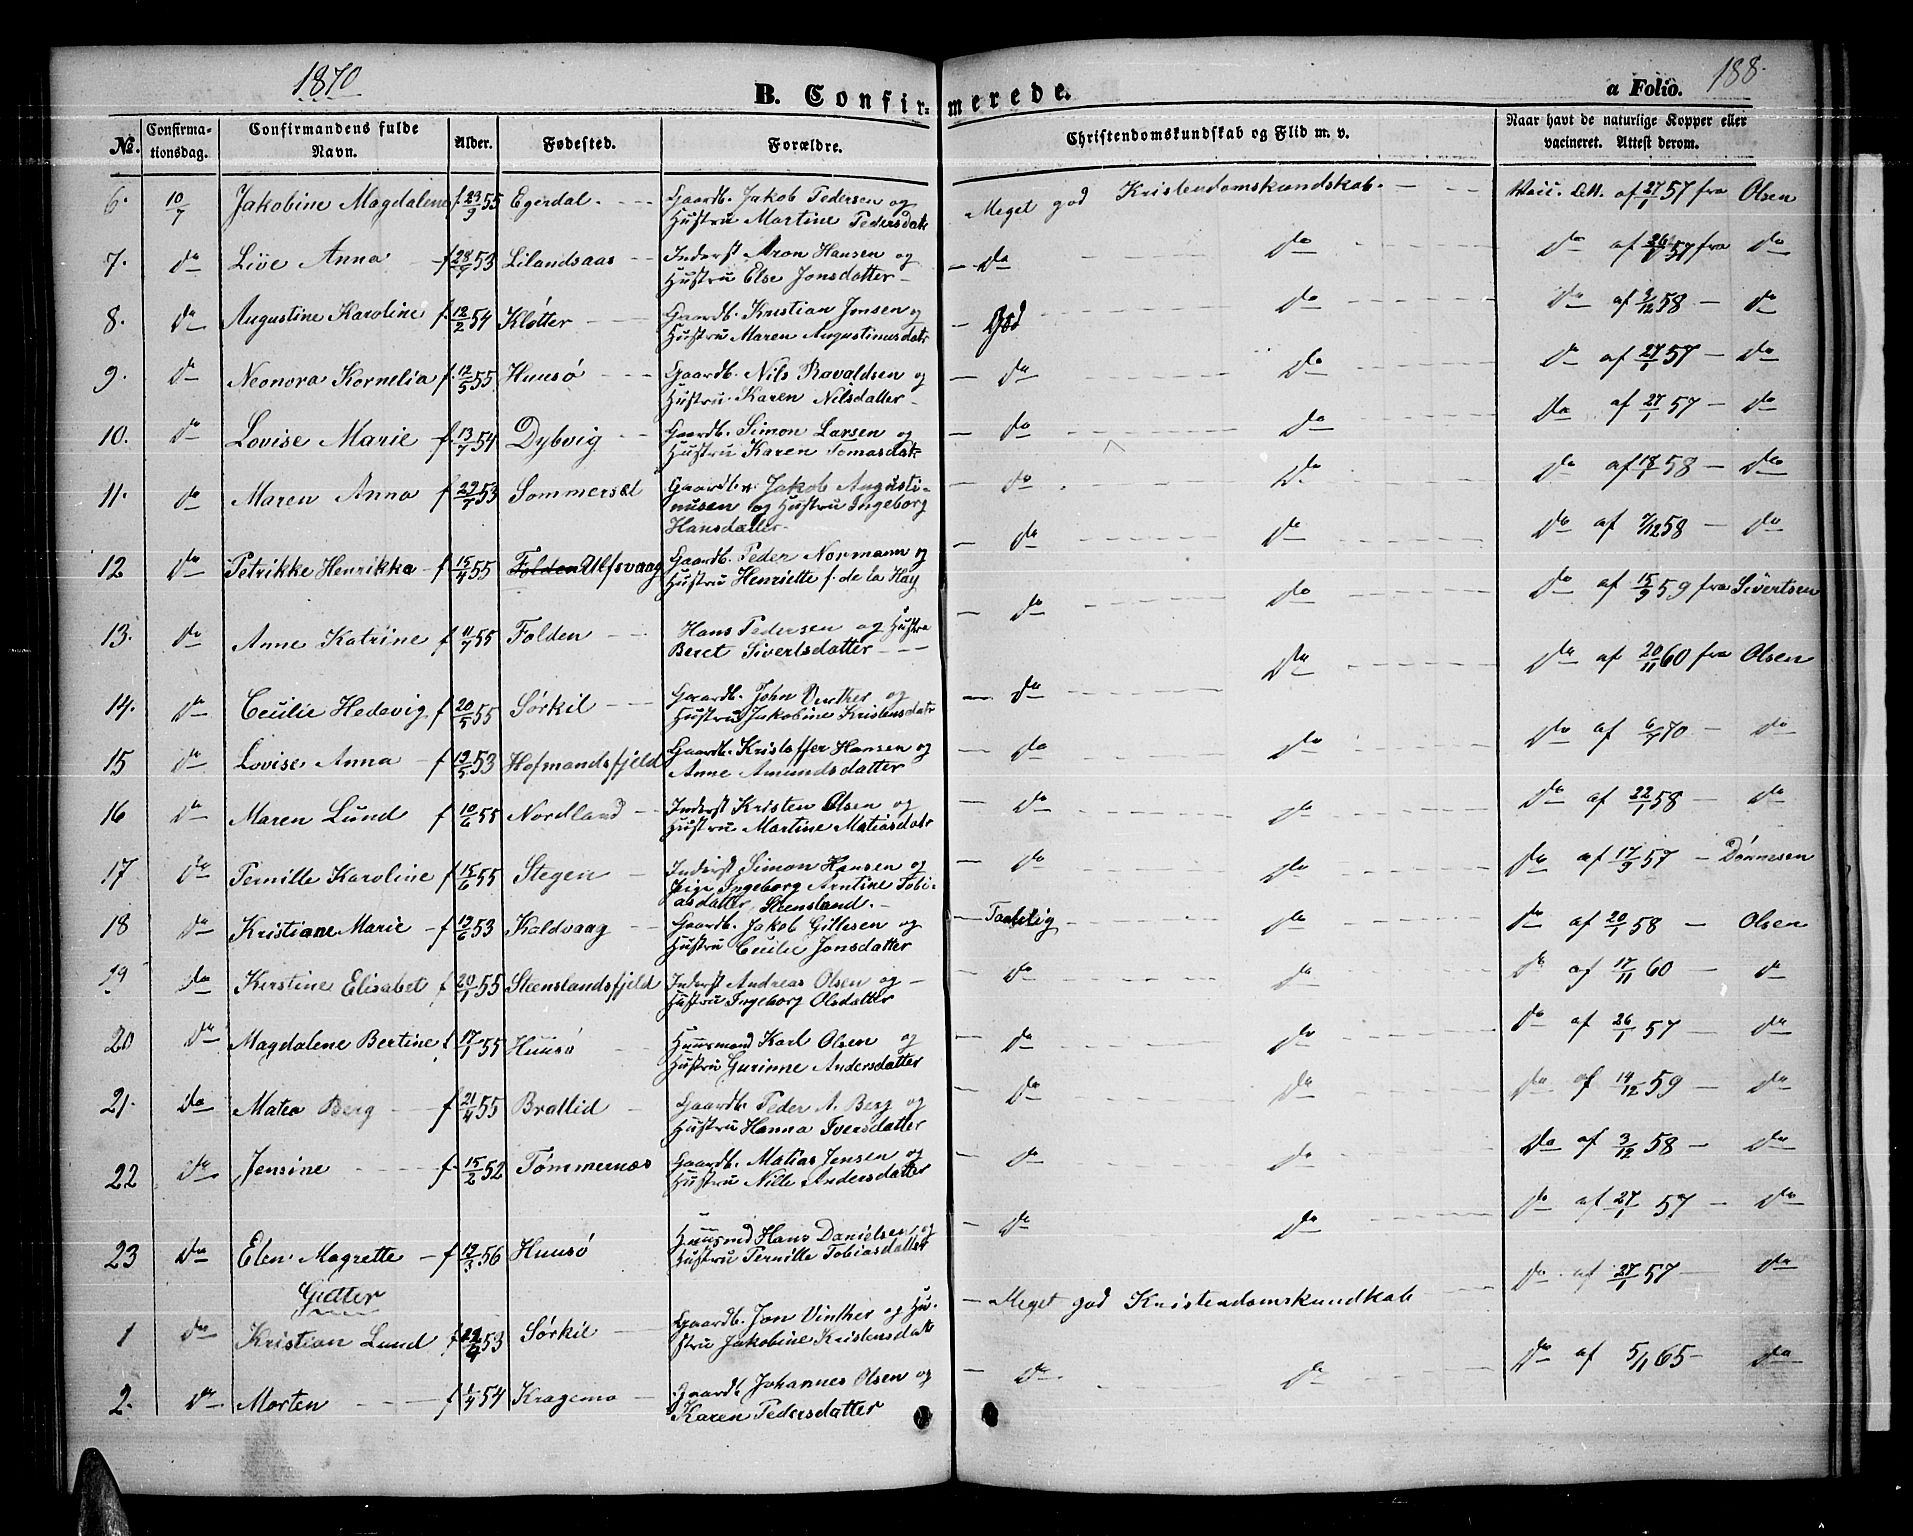 1870
B. Confirmerede.
a Folio. 188.
No. Confirmationsdag. Confirmandens fulde Navn. Alder. Fødested. Forældre. Christendomskundskab og Flid m. v. Naar havt de naturlige Kopper eller vacineret. Attest derom.
6. 10/7 Jakobine Magdalene f. 29/9 55 Egerdal. Gaardb. Jakob Pedersen og
Hustru Martine Pedersdatr Meget god Kristendomskundskab. Vacc. Att. af 27/1 57 fra Olsen
7. do Live Anna f 28/7 53 Lilandsaas Inderst Aron Hansen og
Hustru Else Jonsdatter do do do af 26/1 57 fra do
8. do Augustine Karoline f. 12/2 54 Kløtter Gaardb. Kristian Jonsen og
Hustru Maren Augustinusdatr God do do af 3/12 58 do
9. do Neonora Kornelia f. 12/5 55 Huusø Gaardb. Nils Ravaldsen og
Hustru Karen Nilsdatter do do do af 27/1 57 do
10. do Lovise Marie f. 13/7 54 Dybvig Gaardb. Simon Larsen og
Hustru Karen Tomasdatr do do do af 27/1 57 do
11. do Maren Anna f 29/7 53 Sommersel Gaardbr. Jakob Augusti-
nusen og Hustru Ingeborg
Hansdatter do do do af 18/1 58 do
12 do Petrikke Henrikka f 15/4 55 Folden Ulfsvaag Gaardb. Peder Normann og
Hustru Henriette f. de la Hay do do do af 7/12 58 do
13. do Anne Katrine f 11/7 55 Folden Hans Pedersen og Hustru
Beret Sivertsdatter do do do af 15/9 59 fra Sivertsen
14. do Cecilie Hedevig f 20/5 55 Sørkil Gaardb. John Vinther og
Hustru Jakobine Kristensdatr do do do af 20/11 60 fra Olsen
15 do Lovise Anna f 12/5 53 Hofmandsfjeld Gaardb. Kristoffer Hansen og
Anne Amundsdatter do do do af 6/7 70 do
16 do Maren Lund f 10/6 55 Nordland Inderst Kristen Olsen og
Hustru Martine Matiasdatr do do do af 22/1 58 do
17 do Pernille Karoline f 15/6 55 Stegen Inderst Simon Hansen og
Pige Ingeborg Arntine Tobi-
asdatter Steensland. do do do af 17/9 57 Dønnesen
18 do Kristiane Marie f 12/6 53 Kaldvaag Gaardb. Jakob Gillesen og
Hustru Cecilie Jonsdatter Taalelig do do af 20/1 58 Olsen
19 do Kirstine Elisabet f 20/1 55 Steenslandsfjeld Inderst Andreas Olsen og
Hustru Ingeborg Olsdatter do do do af 17/11 60 do
20 do Magdalene Bertine f 17/1 55 Huusø Huusmand Karl Olsen og
Hustru Gurinne Andersdatter do do do af 26/1 57 do
21. do Matea Berg f 21/4 55 Brotlid Gaardb. Peder A. Berg og
Hustru Hanna Iversdatter do do do af 14/12 59 do
22 do Jensine f. 15/2 52 Tømmernæs Gaardb. Matias Jensen og
Hustru Nille Andersdatter do do do af 3/12 58 do
23 do Elen Magrette f 12/3 56 Huusø Huusmd Hans Danielsen og
Hustru Pernille Tobiasdatter do do do af 27/1 57 do
Gutter
1 do Kristian Lund f 53 Sørkil Gaardb. Jon Vinther og Hu-
stru Jakobine Kristensdatr Meget god Kristendomskundskab do af 27/1 57 do
2. do Morten f 1/4 54 Kragemo Gaardb. Johannes Olsen og
Karen Pedersdatter do do do af 5/1 65 do